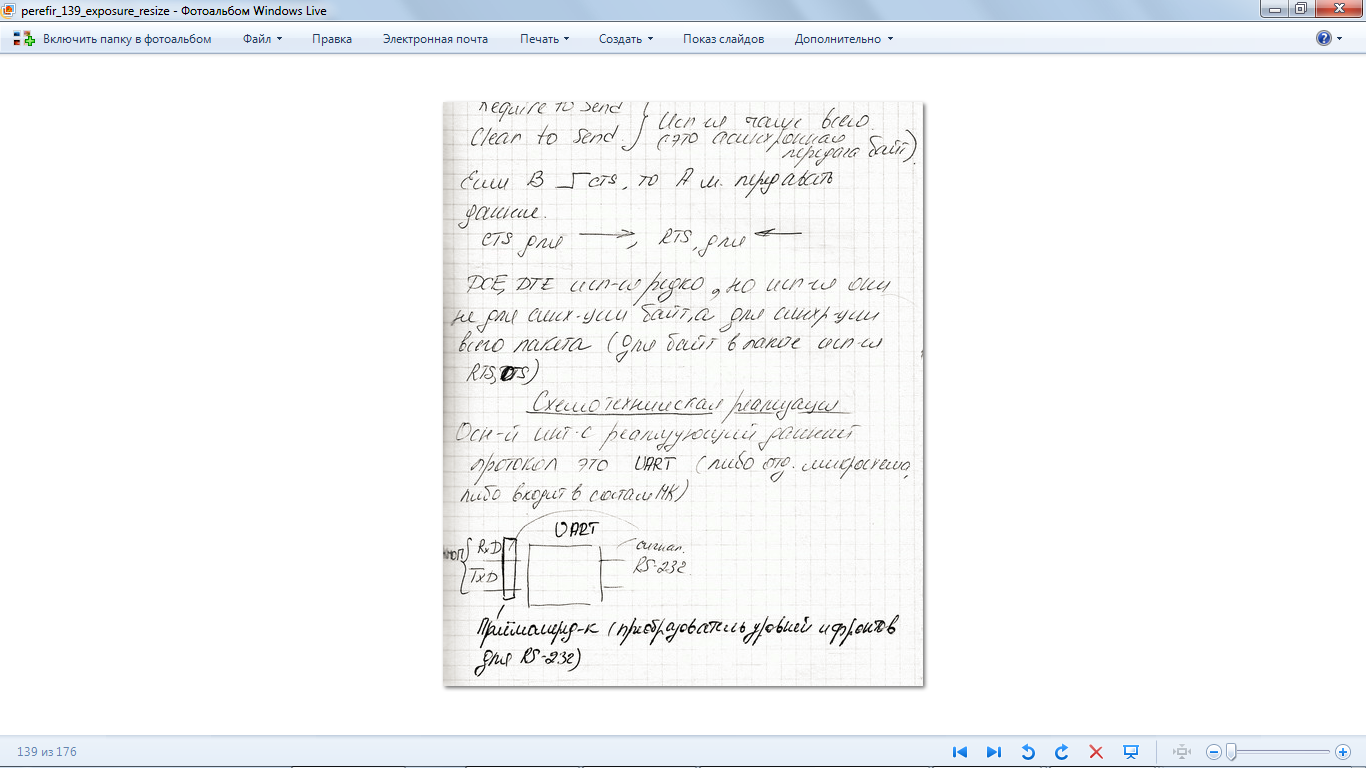 perefir_139_exposure_resize - Фотоальбом Windows Live
Включить папку в фотоальбом Файл Правка Электронная почта Печать Создать Показ слайдов Дополнительно
Require to send
Clear to Send.
Исп-ся чаще всего.
(это асинхронная
передача байт).
Если В CTS, то А м. передавать
данные.
CTS для →, RTS, для ←
DCE, DTE исп-ся редко, но исп-ся они
не для синх-ции байт, а для синхр-ции
всего пакета (для байт в пакете исп-ся
RTS, CTS)
Схемотехническая реализация
Осн-й инт-с реализующий данный
протокол это UART (либо отд. микросхема,
либо входит в состав МК)
UART
RxD
TxD
сигнал.
RS-232
Приёмоперед-к (преобразователь уровней и фронтов
для RS-232)
139 из 176